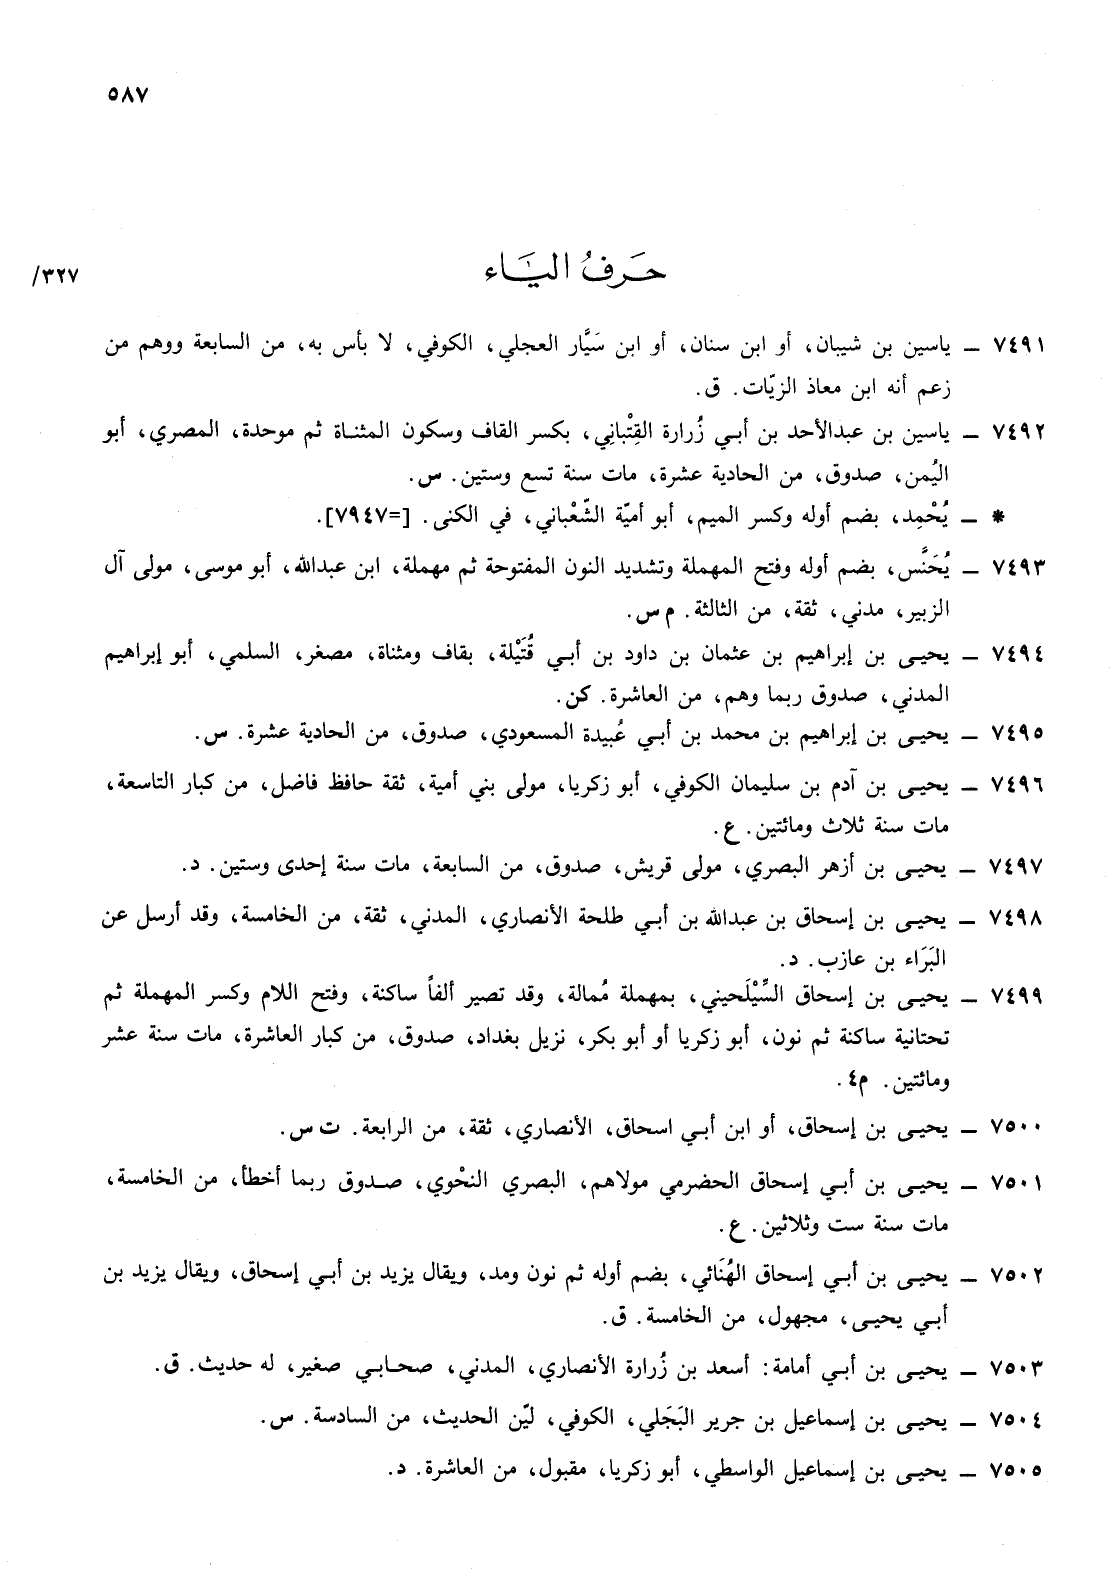 ٥٨٧
حَرفُ اليَاء
٣٢٧/
٧٤٩١ ــ ياسين بن شيبان، أو ابن سنان، أو ابن سَيَّار العجلي، الكوفي، لا بأس به، من السابعة ووهم من
زعم أنه ابن معاذ الزيّات. ق.
٧٤٩٢ ــ ياسين بن عبدالأحد بن أبي زُرارة القِتْباني، بكسر القاف وسكون المثناة ثم موحدة، المصري، أبو
اليُمن، صدوق، من الحادية عشرة، مات سنة تسع وستين. س.
* ــ يُحْمِد، بضم أوله وكسر الميم، أبو أميّة الشّعْباني، في الكنى. [=٧٩٤٧].
٧٤٩٣ ــ يُحَنَّس، بضم أوله وفتح المهملة وتشديد النون المفتوحة ثم مهملة، ابن عبدالله، أبو موسى، مولى آل
الزبير، مدني، ثقة، من الثالثة. م س.
٧٤٩٤ ــ يحيى بن إبراهيم بن عثمان بن داود بن أبي قُتَيْلة، بقاف ومثناة، مصغر، السلمي، أبو إبراهيم
المدني، صدوق ربما وهم، من العاشرة. كن.
٧٤٩٥ ــ يحيى بن إبراهيم بن محمد بن أبي عُبيدة المسعودي، صدوق، من الحادية عشرة. س.
٧٤٩٦ ــ يحيى بن آدم بن سليمان الكوفي، أبو زكريا، مولى بني أمية، ثقة حافظ فاضل، من كبار التاسعة،
مات سنة ثلاث ومائتين. ع.
٧٤٩٧ ــ يحيى بن أزهر البصري، مولى قريش، صدوق، من السابعة، مات سنة إحدى وستين. د.
٧٤٩٨ ــ يحيى بن إسحاق بن عبدالله بن أبي طلحة الأنصاري، المدني، ثقة، من الخامسة، وقد أرسل عن
البَرَاء بن عازب. د.
٧٤٩٩ ــ يحيى بن إسحاق السِّيْلَحيني، بمهملة مُمالة، وقد تصير ألفاً ساكنة، وفتح اللام وكسر المهملة ثم
تحتانية ساكنة ثم نون، أبو زكريا أو أبو بكر، نزيل بغداد، صدوق، من كبار العاشرة، مات سنة عشر
ومائتين. م٤.
٧٥٠٠ ــ يحيى بن إسحاق، أو ابن أبي اسحاق، الأنصاري، ثقة، من الرابعة. ت س.
٧٥٠١ ــ يحيى بن أبي إسحاق الحضرمي مولاهم، البصري النحْوي، صدوق ربما أخطأ، من الخامسة،
مات سنة ست وثلاثين. ع.
٧٥٠٢ ــ يحيى بن أبي إسحاق الهُنَائي، بضم أوله ثم نون ومد، ويقال يزيد بن أبي إسحاق، ويقال يزيد بن
أبي يحيى، مجهول، من الخامسة. ق.
٧٥٠٣ ــ يحيى بن أبي أمامة: أسعد بن زُرارة الأنصاري، المدني، صحابي صغير، له حديث. ق.
٧٥٠٤ ــ يحيى بن إسماعيل بن جرير البَجَلي، الكوفي، ليّن الحديث، من السادسة. س.
٧٥٠٥ ــ يحيى بن إسماعيل الواسطي، أبو زكريا، مقبول، من العاشرة. د.